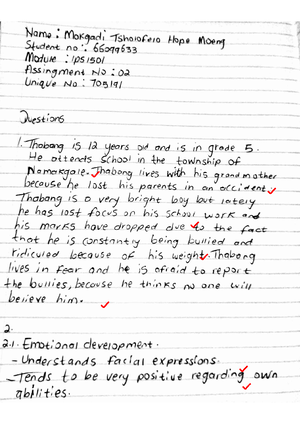 Name : Mokgadi Tshologelo Hope Moeng
Student no : 66099633
Module : IPS1501
Assingment No : 02
Unique No : 705191
Questions
1. Thabang is 12 years old and is in grade 5.
He attends school in the township of
Namakgale. Thabang lives with his grandmother
because he lost his parents in an accident
Thabang is a very bright boy but lately
he has lost focus on his school work and
his marks have dropped due to the fact
that he is constantly being bullied and
ridiculed because of his weight. Thabang
lives in fear and he is afraid to report
the bullies, because he thinks no one will
believe him.
2.
2.1. Emotional development.
- Understands facial expressions.
- Tends to be very positive regarding own
abilities.